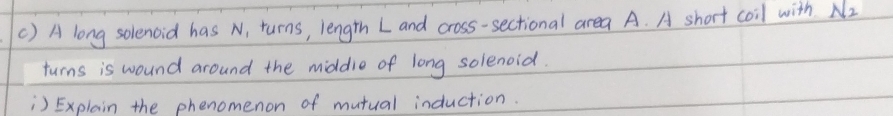 c) A long solenoid has N₁ turns, length L and cross-sectional area A. A short coil with N₂
turns is wound around the middle of long solenoid.
i) Explain the phenomenon of mutual induction.